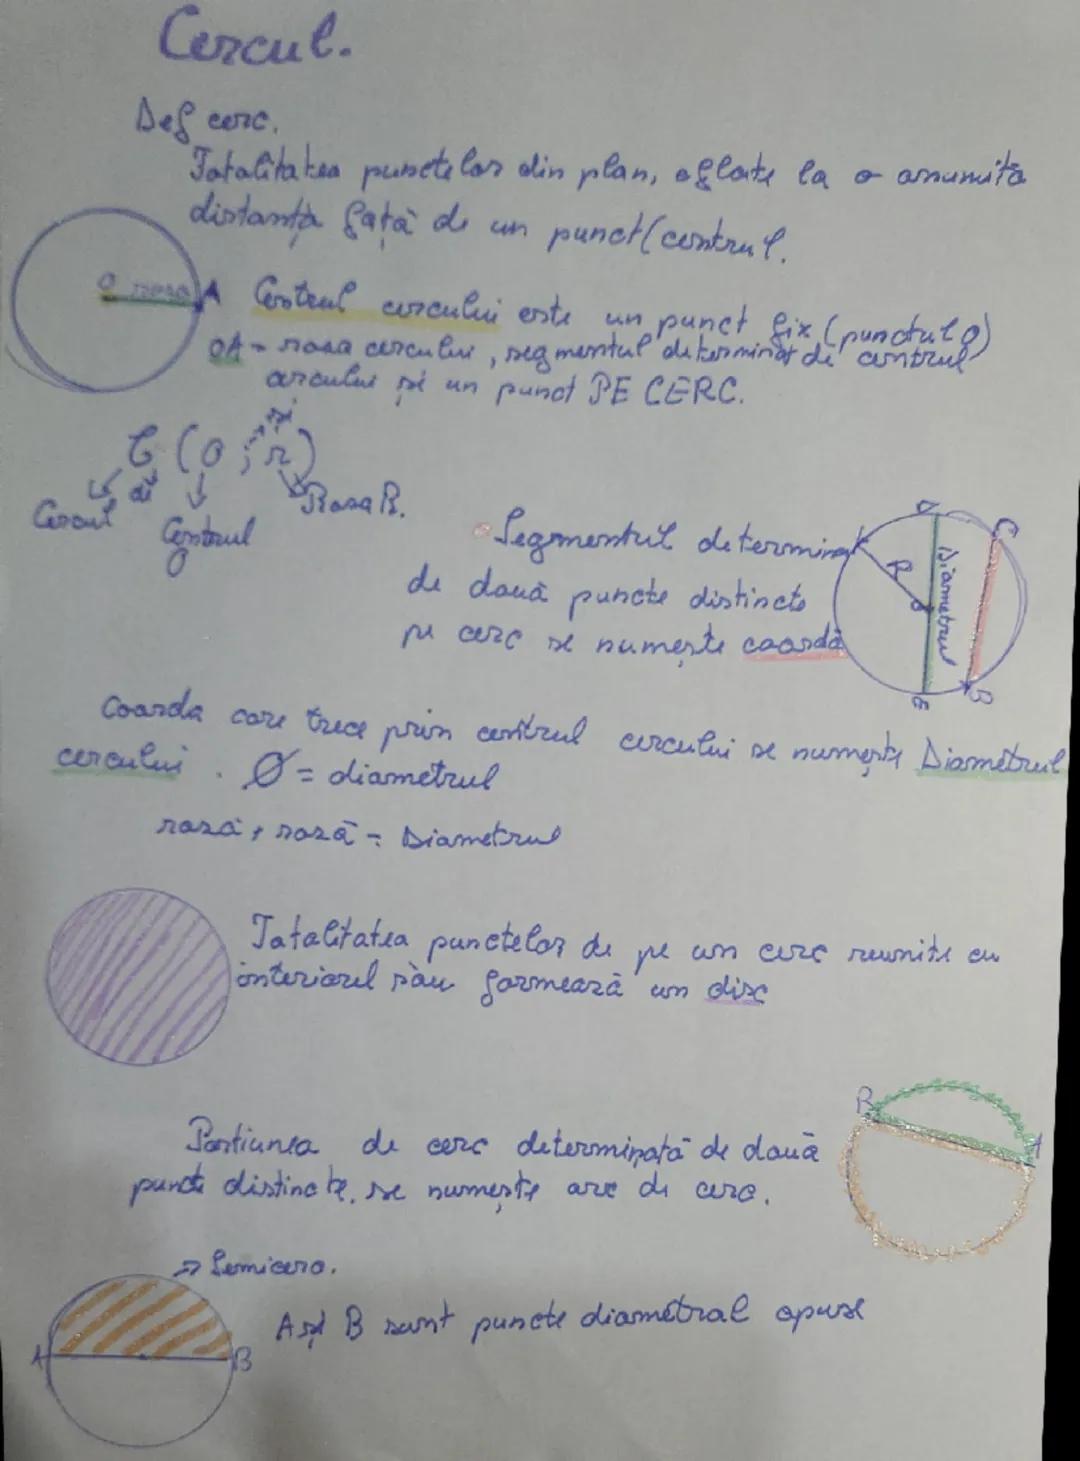 Cercul.
Def cerc.
Totalitatea punctelor din plan, aflate la o anumită
distanță față de un punct (centrul.
O raza A
Centrul cercului este un punct fix (punctul O)
OA - raza cercului, segmentul determinat de centrul
cercului și un punct PE CERC.
C (O ; r)
Cercul de Centrul Raza R.
Segmentul determinat
de două puncte distincte
pe cerc se numește coardă
R O Diametrul C B
Coarda care trece prin centrul cercului se numește Diametrul
cercului. Ø = diametrul
rază + rază = Diametrul
Totalitatea punctelor de pe un cerc reunite cu
interiorul său formează un disc
B A
Porțiunea de cerc determinată de două
puncte distincte, se numește arc de cerc.
→ Semicerc.
A și B sunt puncte diametral opuse
A B